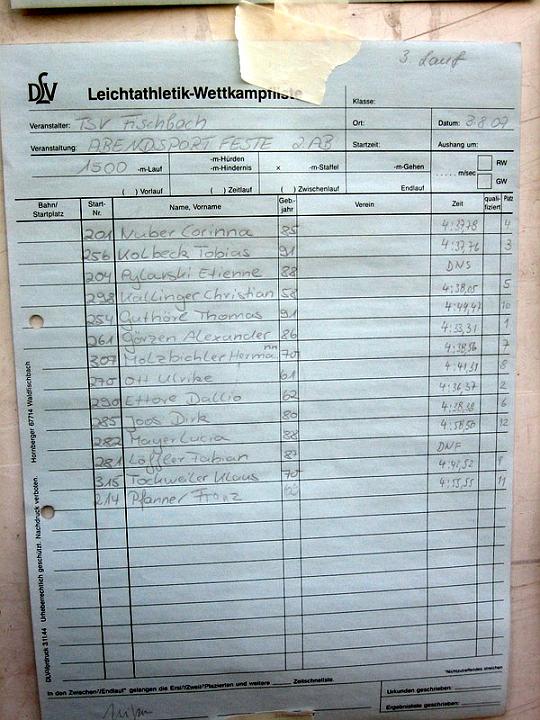 3. Lauf
DLV Leichtathletik-Wettkampfliste
Klasse:
Veranstalter: TSV Fischbach Ort: Datum: 3.8.07
Veranstaltung: ABENDSPORTFESTE 2.AB Startzeit: Aushang um:
1500 -m-Lauf -m-Hürden -m-Hindernis x -m-Staffel -m-Gehen ..... m/sec RW GW
( ) Vorlauf ( ) Zeitlauf ( ) Zwischenlauf Endlauf
Bahn/Startplatz Start-Nr. Name, Vorname Geb-jahr Verein Zeit quali-fiziert Platz
201 Nuber Corinna 85 4:37,78 4
256 Kolbeck Tobias 91 4:37,76 3
204 Pylarski Etienne 88 DNS
298 Kallinger Christian 58 4:38,05 5
254 Guthörl Thomas 91 4:44,47 10
261 Görzen Alexander 86 4:33,31 1
307 Holzbichler Hermann 70 4:38,56 7
270 Ott Ulrike 61 4:41,31 8
290 Ettore Dallio 62 4:36,57 2
285 Joos Dirk 80 4:38,38 6
282 Mayer Lucia 88 4:58,50 12
281 Löffler Fabian 87 DNF
315 Tockweiler Klaus 70 4:42,52 9
214 Pfanner Franz 4:55,55 11
*Nichtzutreffendes streichen
In den Zwischen-/Endlauf* gelangen die Erst-/Zweit*Plazierten und weitere Zeitschnellste.
Urkunden geschrieben:
Ergebnisliste geschrieben:
Hornberger 67714 Waldfischbach
DLV-Vordruck 31144 Urheberrechtlich geschützt. Nachdruck verboten.